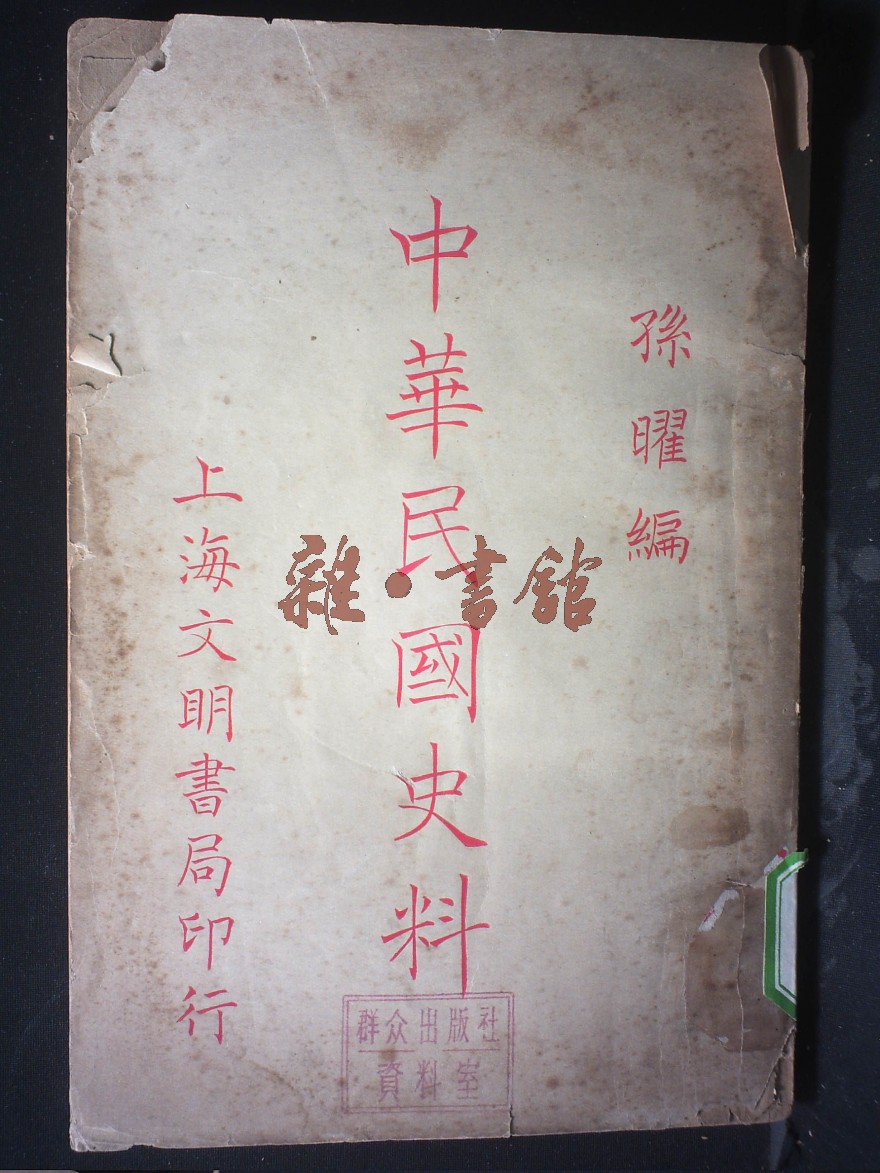 孫曜編
中華民國史料
上海文明書局印行
雜·書館
群众出版社
資料室